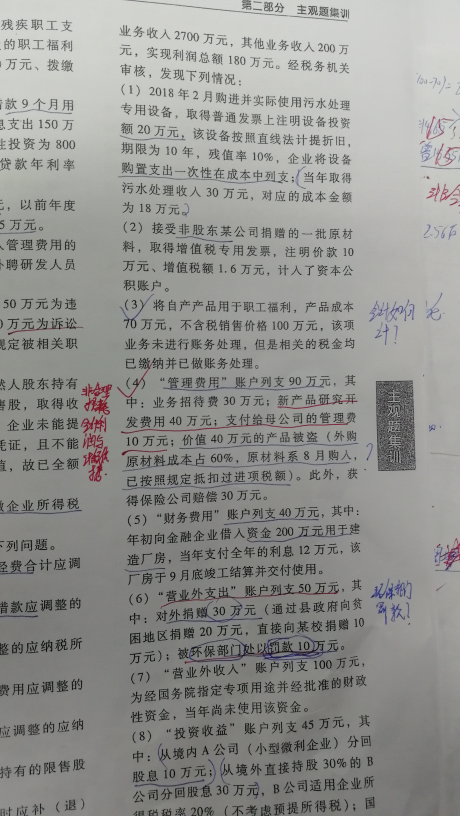 第二部分 主观题集训
残疾职工支
的职工福利
万元、拨缴
借款9个月用
息支出150万
性投资为800
贷款年利率
元,以前年度
5万元。
入管理费用的
外聘研发人员
50万元为违
0万元为诉讼
规定被相关职
然人股东持有
售股,取得收
企业未能提
凭证,且不能
值,故已全额
缴企业所得税
下列问题。
经费合计应调
借款应调整的
整的应纳税所
费用应调整的
应调整的应纳
持有的限售股
时应补(退)
业务收入2700万元,其他业务收入200万
元,实现利润总额180万元。经税务机关
审核,发现下列情况:
(1)2018年2月购进并实际使用污水处理
专用设备,取得普通发票上注明设备投资
额20万元,该设备按照直线法计提折旧,
期限为10年,残值率10%,企业将设备
购置支出一次性在成本中列支;当年取得
污水处理收入30万元,对应的成本金额
为18万元。
(2)接受非股东某公司捐赠的一批原材
料,取得增值税专用发票,注明价款10
万元、增值税额1.6万元,计入了资本公
积账户。
(3)将自产产品用于职工福利,产品成本
70万元,不含税销售价格100万元,该项
业务未进行账务处理,但是相关的税金均
已缴纳并已做账务处理。
(4)“管理费用”账户列支90万元,其
中:业务招待费30万元;新产品研究开
发费用40万元;支付给母公司的管理费
10万元;价值40万元的产品被盗(外购
原材料成本占60%,原材料系8月购入,
已按照规定抵扣过进项税额)。此外,获
得保险公司赔偿30万元。
(5)“财务费用”账户列支40万元,其中:
年初向金融企业借入资金200万元用于建
造厂房,当年支付全年的利息12万元,该
厂房于9月底竣工结算并交付使用。
(6)“营业外支出”账户列支50万元,其
中:对外捐赠30万元(通过县政府向贫
困地区捐赠20万元,直接向某校捐赠10
万元);被环保部门处以罚款10万元。
(7)“营业外收入”账户列支100万元,
为经国务院指定专项用途并经批准的财政
性资金,当年尚未使用该资金。
(8)“投资收益”账户列支45万元,其
中:从境内A公司(小型微利企业)分回
股息10万元;从境外直接持股30%的B
公司分回股息30万元,B公司适用企业所
得税税率20%(不考虑预提所得税);国
主观题集训